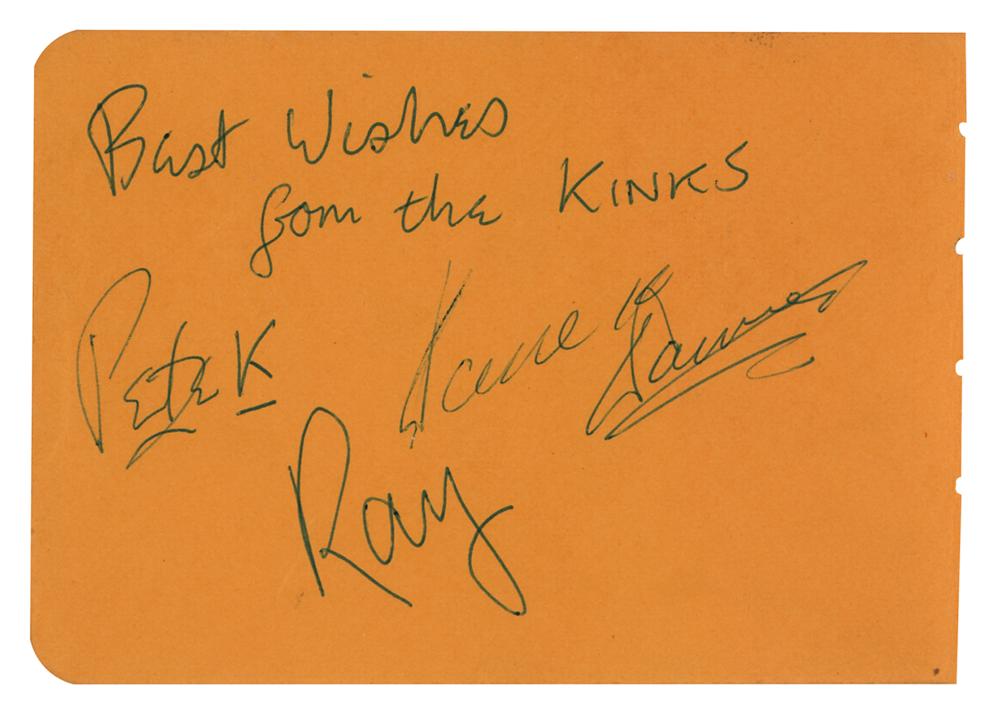 Best Wishes
from the KINKS
Pete K Dave Davies
Ray